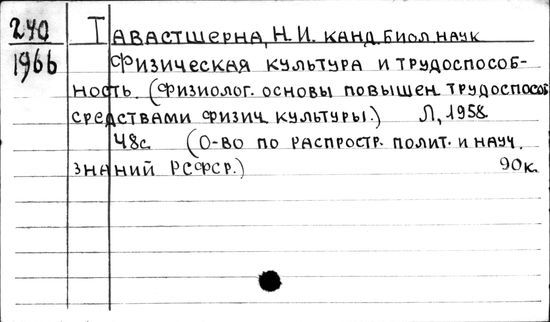 240
1966
Тавастшерна, Н.И. канд. биол. наук
Физическая культура и трудоспособ-
ность. (Физиолог. основы повышен. трудоспособ
средствами физич. культуры.) Л, 1958.
48с. (О-во по распростр. полит. и науч.
знаний РСФСР.) 90к.